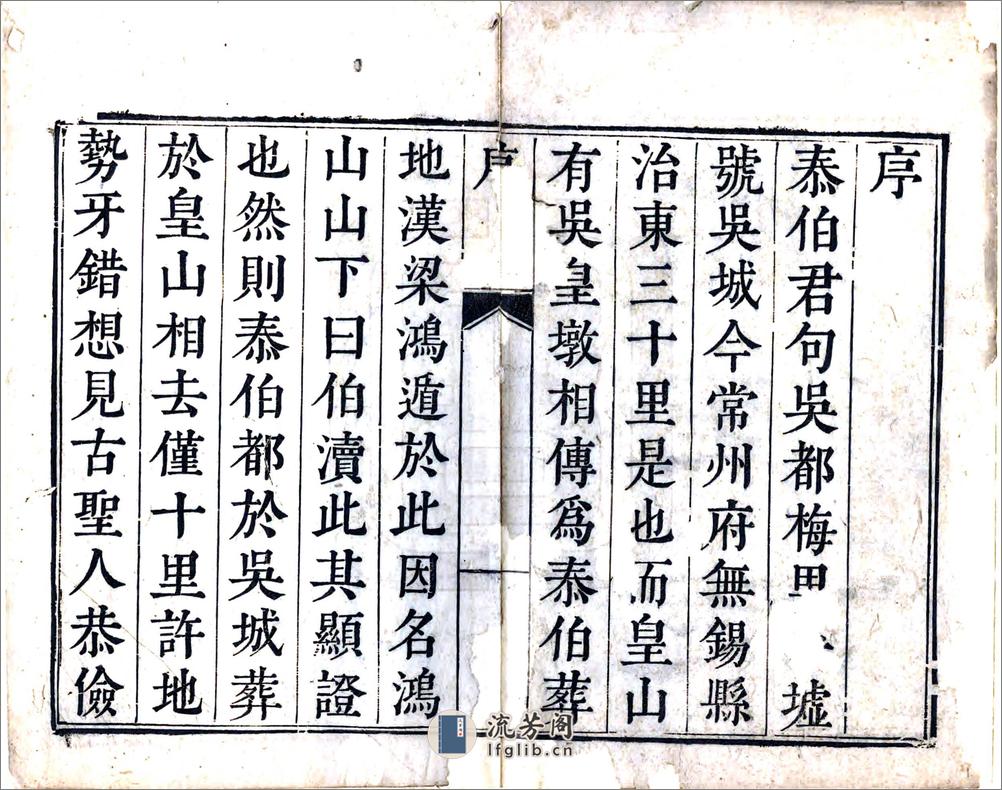 序
泰伯君句吳都梅里墟
號吳城今常州府無錫縣
治東三十里是也而皇山
有吳皇墩相傳爲泰伯葬
序
地漢梁鴻遁於此因名鴻
山山下曰伯瀆此其顯證
也然則泰伯都於吳城葬
於皇山相去僅十里許地
勢牙錯想見古聖人恭儉
流芳阁
lfglib.cn